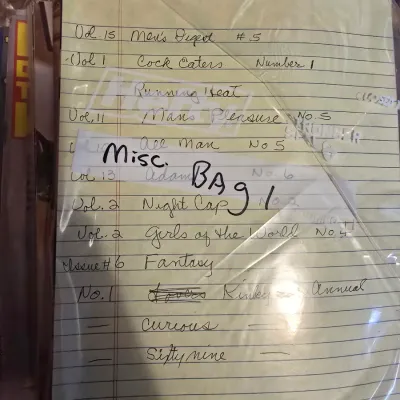 Vol. 15 Men's Digest #.5
Vol 1 Cock Eaters Number 1
Running Heat
Vol. 11 Man's Pleasure No 5
All Man No 5
Misc.
Vol. 13 Adam No. 6
BAg 1
Vol. 2 Night Cap No
Vol. 2 Girls of the World No 4
Issue #6 Fantasy
No. 1 Annual
— Curious —
— Sixty nine —